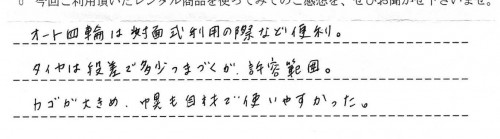 今回ご利用頂いたレンタル商品を使ってみてのご感想を、ぜひお聞かせ下さいませ。
オート四輪は対面式利用の際など便利。
タイヤは段差で多少つまづくが、許容範囲。
カゴが大きめ、中具も自材で使いやすかった。